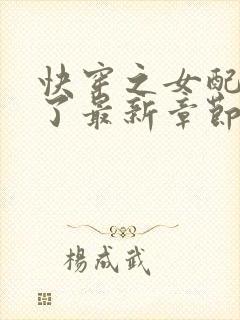 快穿之女配
了最新章節
楊成武